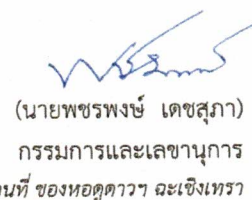 (นายพชรพงษ์ เดชสุภา)
กรรมการและเลขานุการ
นที่ ของหอดูดาวฯ ฉะเชิงเทรา